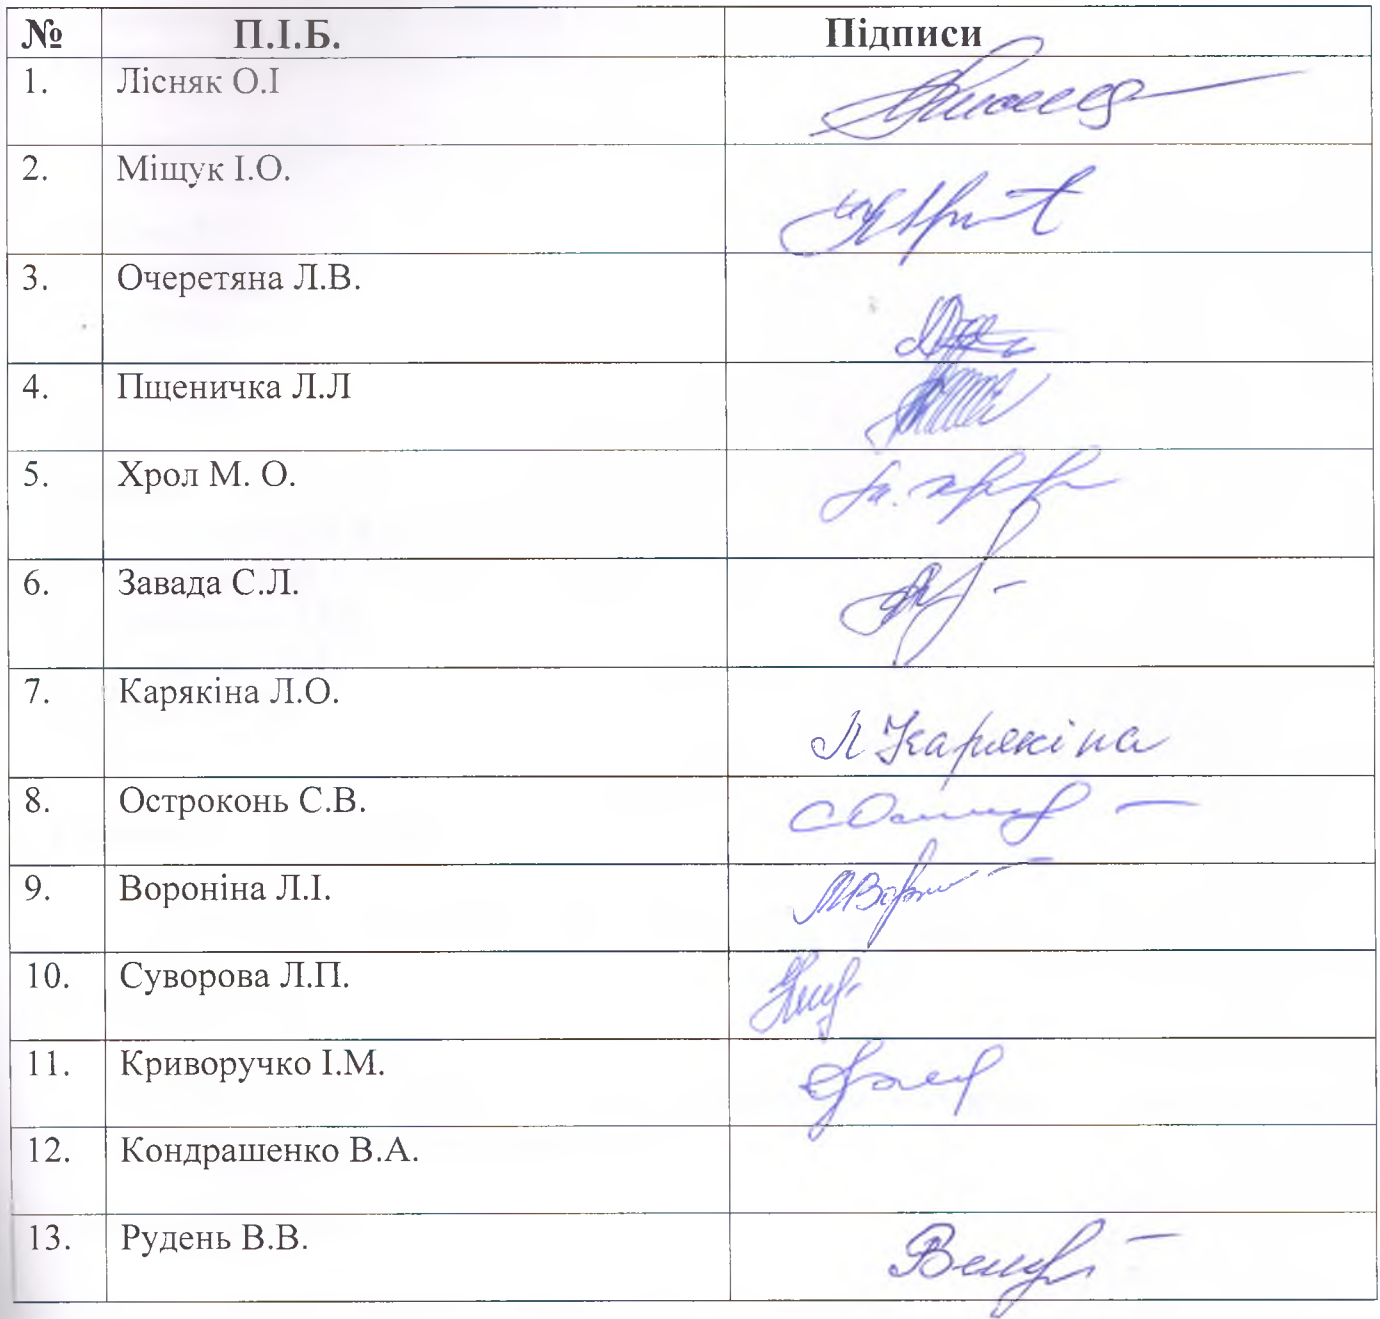 № П.І.Б. Підписи
1. Лісняк О.І
2. Міщук І.О.
3. Очеретяна Л.В.
4. Пщеничка Л.Л
5. Хрол М. О.
6. Завада С.Л.
7. Карякіна Л.О. Л Карякіна
8. Остроконь С.В.
9. Вороніна Л.І.
10. Суворова Л.П.
11. Криворучко І.М.
12. Кондрашенко В.А.
13. Рудень В.В.